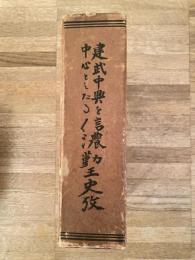 建武中興を
中心としたる
信濃勤王史攷